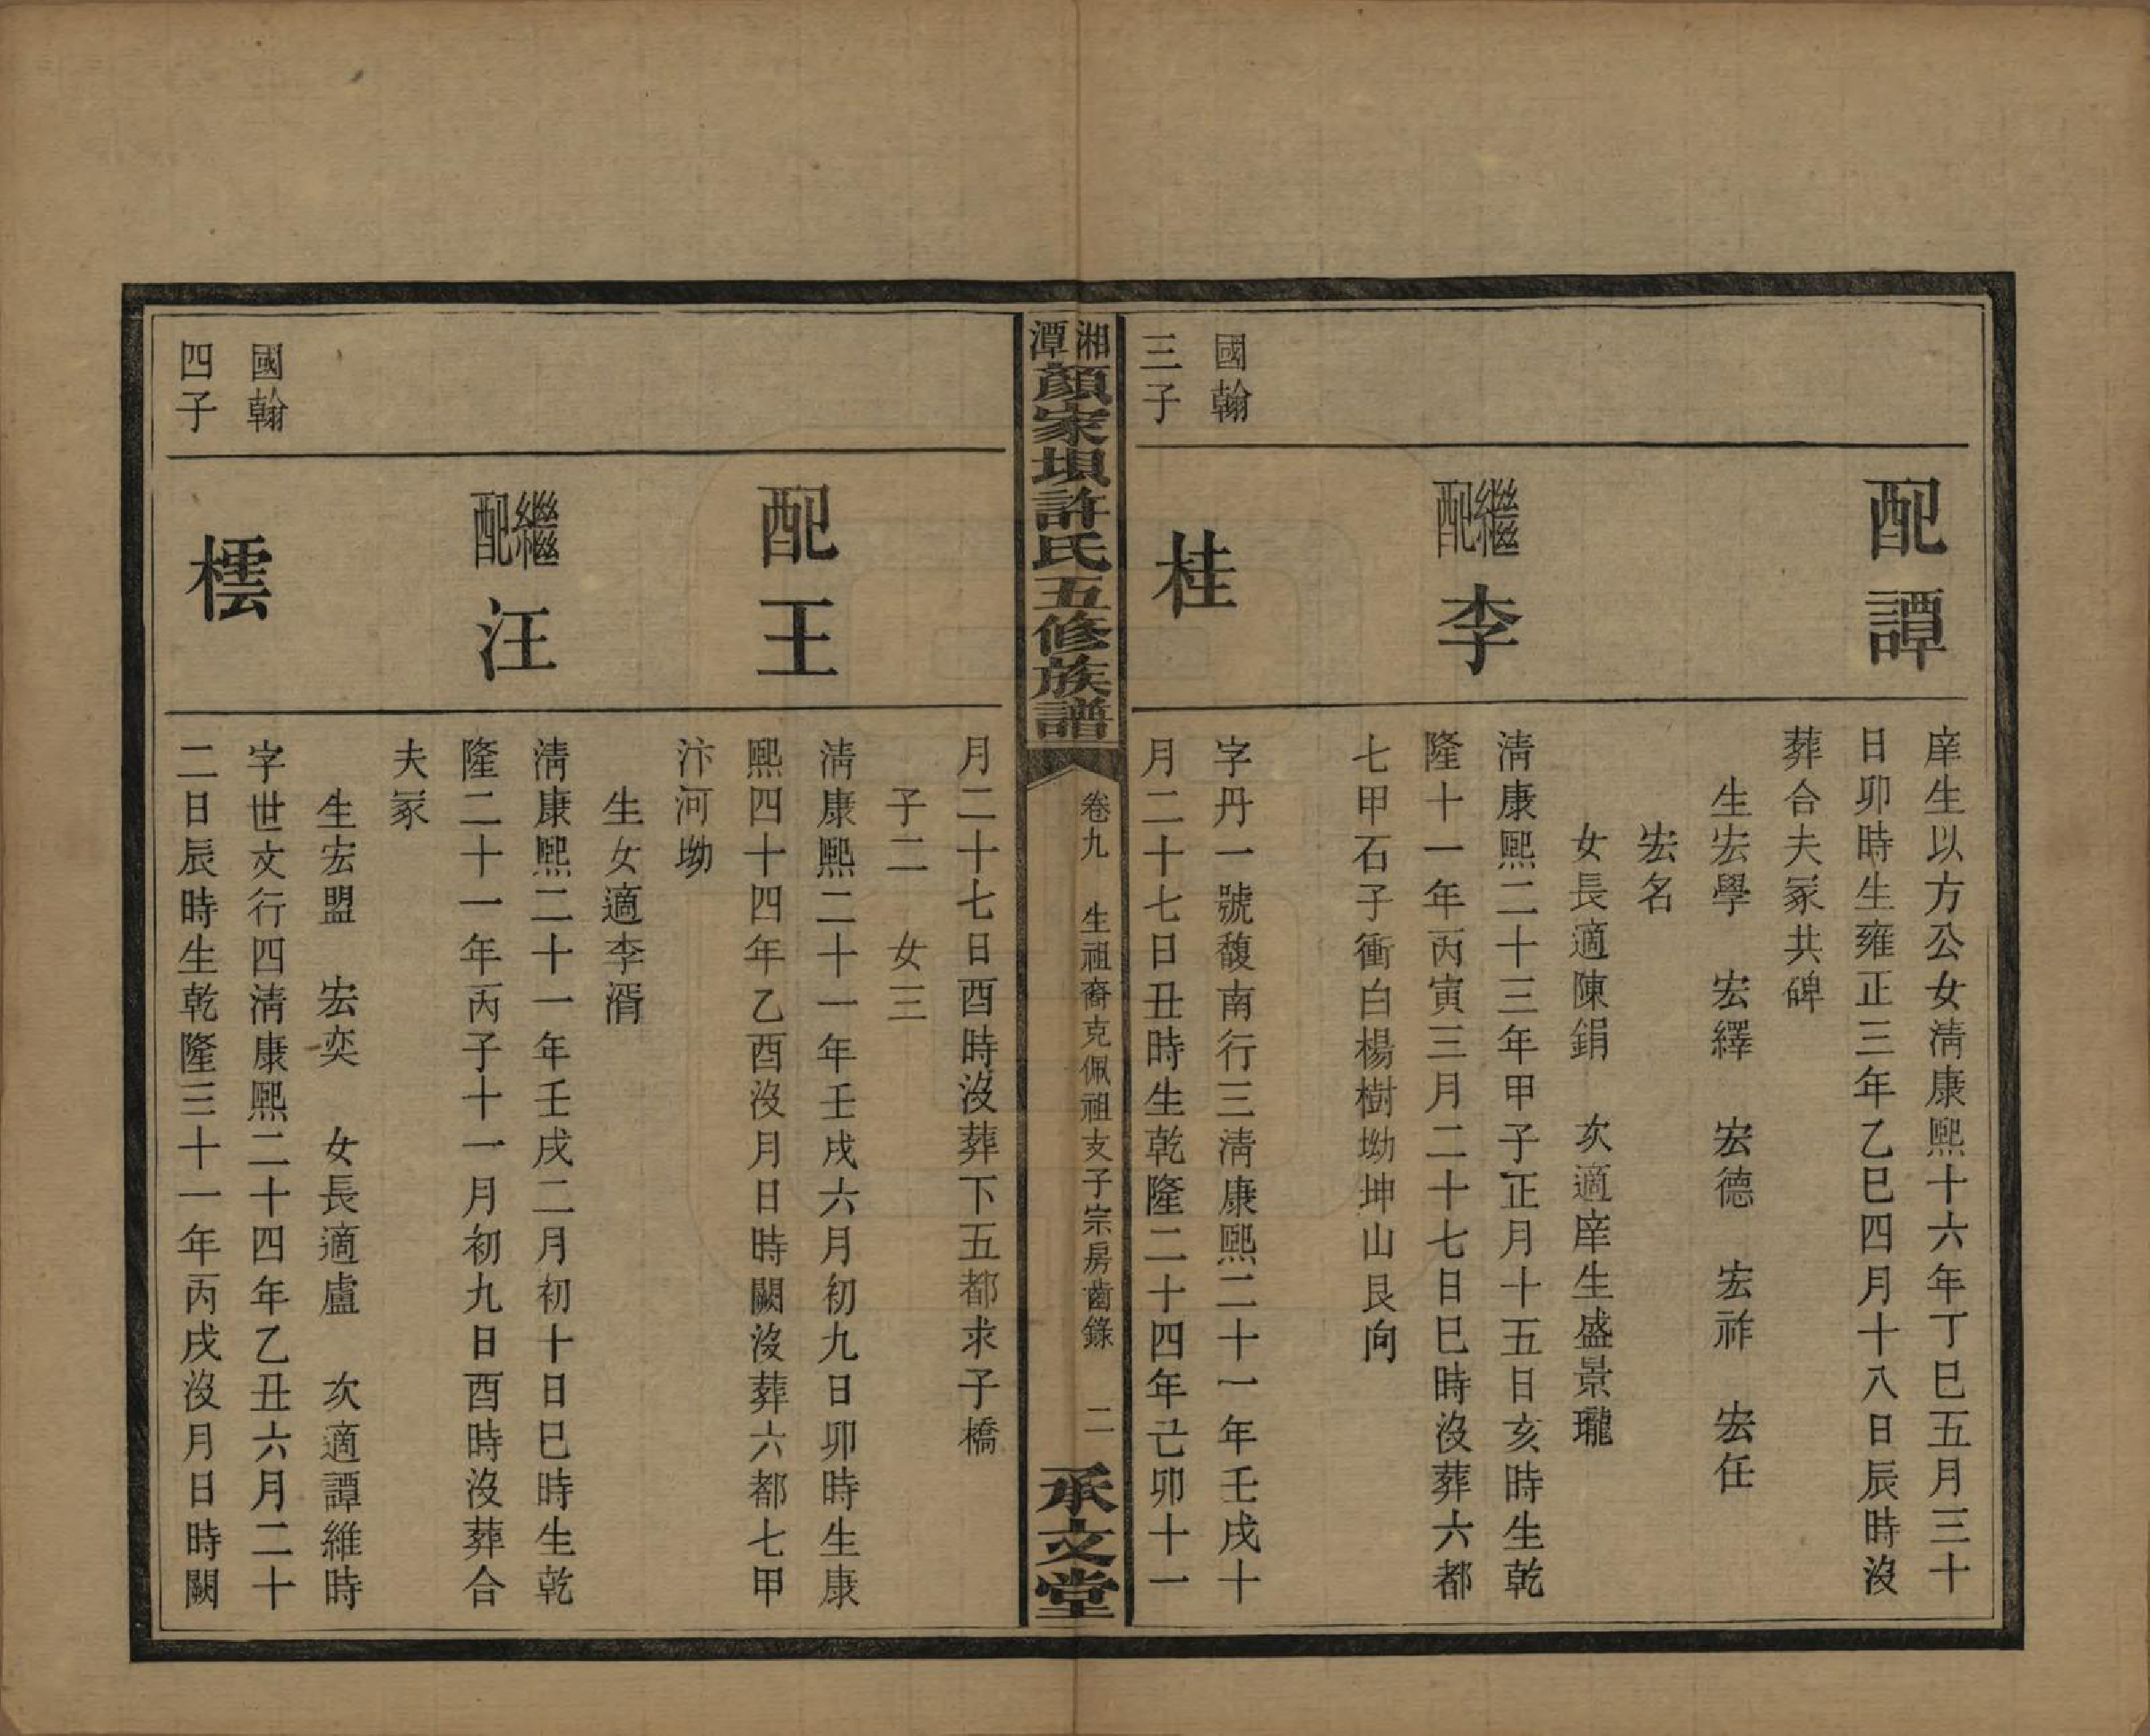 配譚
庠生以方公女淸康熙十六年丁巳五月三十
日卯時生雍正三年乙巳四月十八日辰時沒
葬合夫冢共碑
生宏學　宏繹　宏德　宏祚　宏任
宏名
女長適陳鋗　次適庠生盛景瓏
繼配李
淸康熙二十三年甲子正月十五日亥時生乾
隆十一年丙寅三月二十七日巳時沒葬六都
七甲石子衝白楊樹坳坤山艮向
國翰
三子
桂
字丹一號馥南行三淸康熙二十一年壬戌十
月二十七日丑時生乾隆二十四年己卯十一
湘潭顏家垻許氏五修族譜
卷九　生祖裔克佩祖支子宗房齒錄　二
承文堂
月二十七日酉時沒葬下五都求子橋
子二　女三
配王
淸康熙二十一年壬戌六月初九日卯時生康
熙四十四年乙酉沒月日時闕沒葬六都七甲
汴河坳
生女適李湑
繼配汪
淸康熙二十一年壬戌二月初十日巳時生乾
隆二十一年丙子十一月初九日酉時沒葬合
夫冢
生宏盟　宏奕　女長適盧　次適譚維時
國翰
四子
橒
字世文行四淸康熙二十四年乙丑六月二十
二日辰時生乾隆三十一年丙戌沒月日時闕